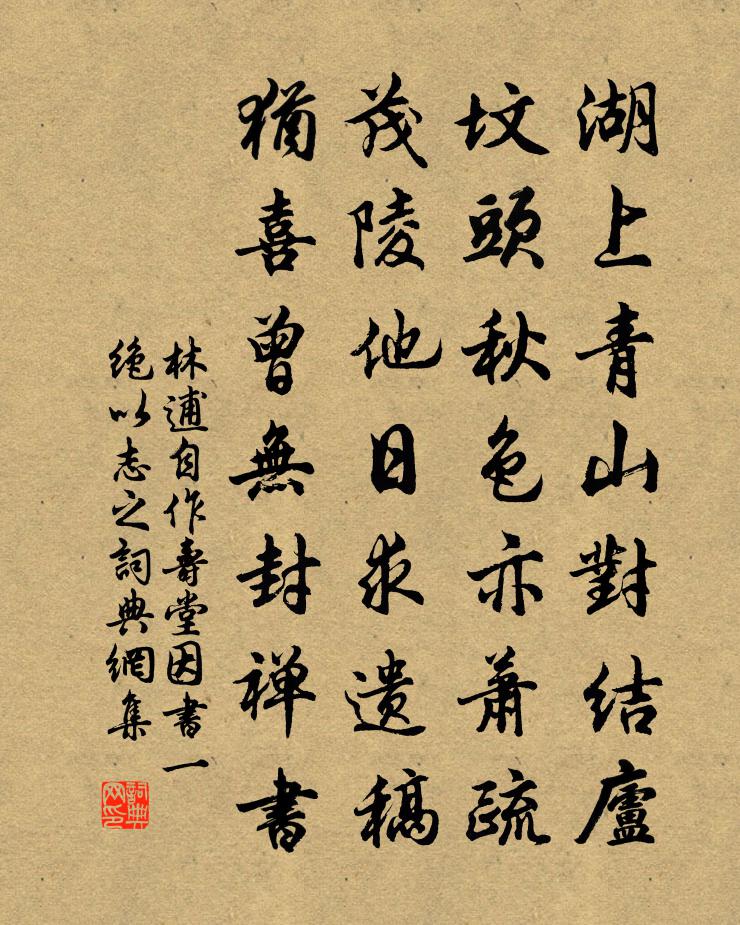 湖上青山對結廬
墳頭秋色亦蕭疏
茂陵他日求遺稿
猶喜曾無封禪書
林逋自作壽堂因書一
絕以志之詞典網集
詞典網印